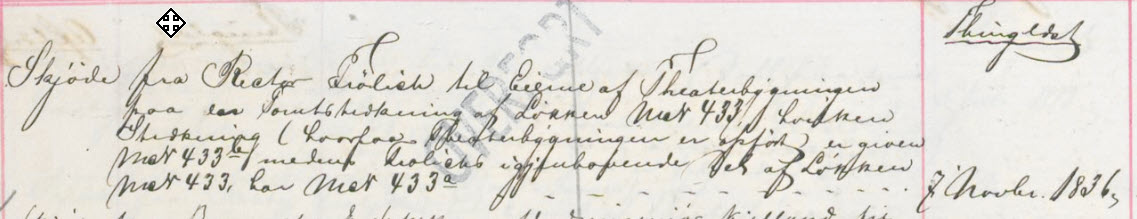 Thingldst
Skjøde fra Rector Frölich til Eierne af Theaterbygningen
paa en Tomtstrækning af Løkken MatN 433, hvilken
Strækning (hvorpaa Theaterbygningen er opført) er given
MatN 433b, medens Frölichs igjenhavende Del af Løkken
MatN 433, har MatN 433a
7 Novbr. 1836,
OVERFØRT